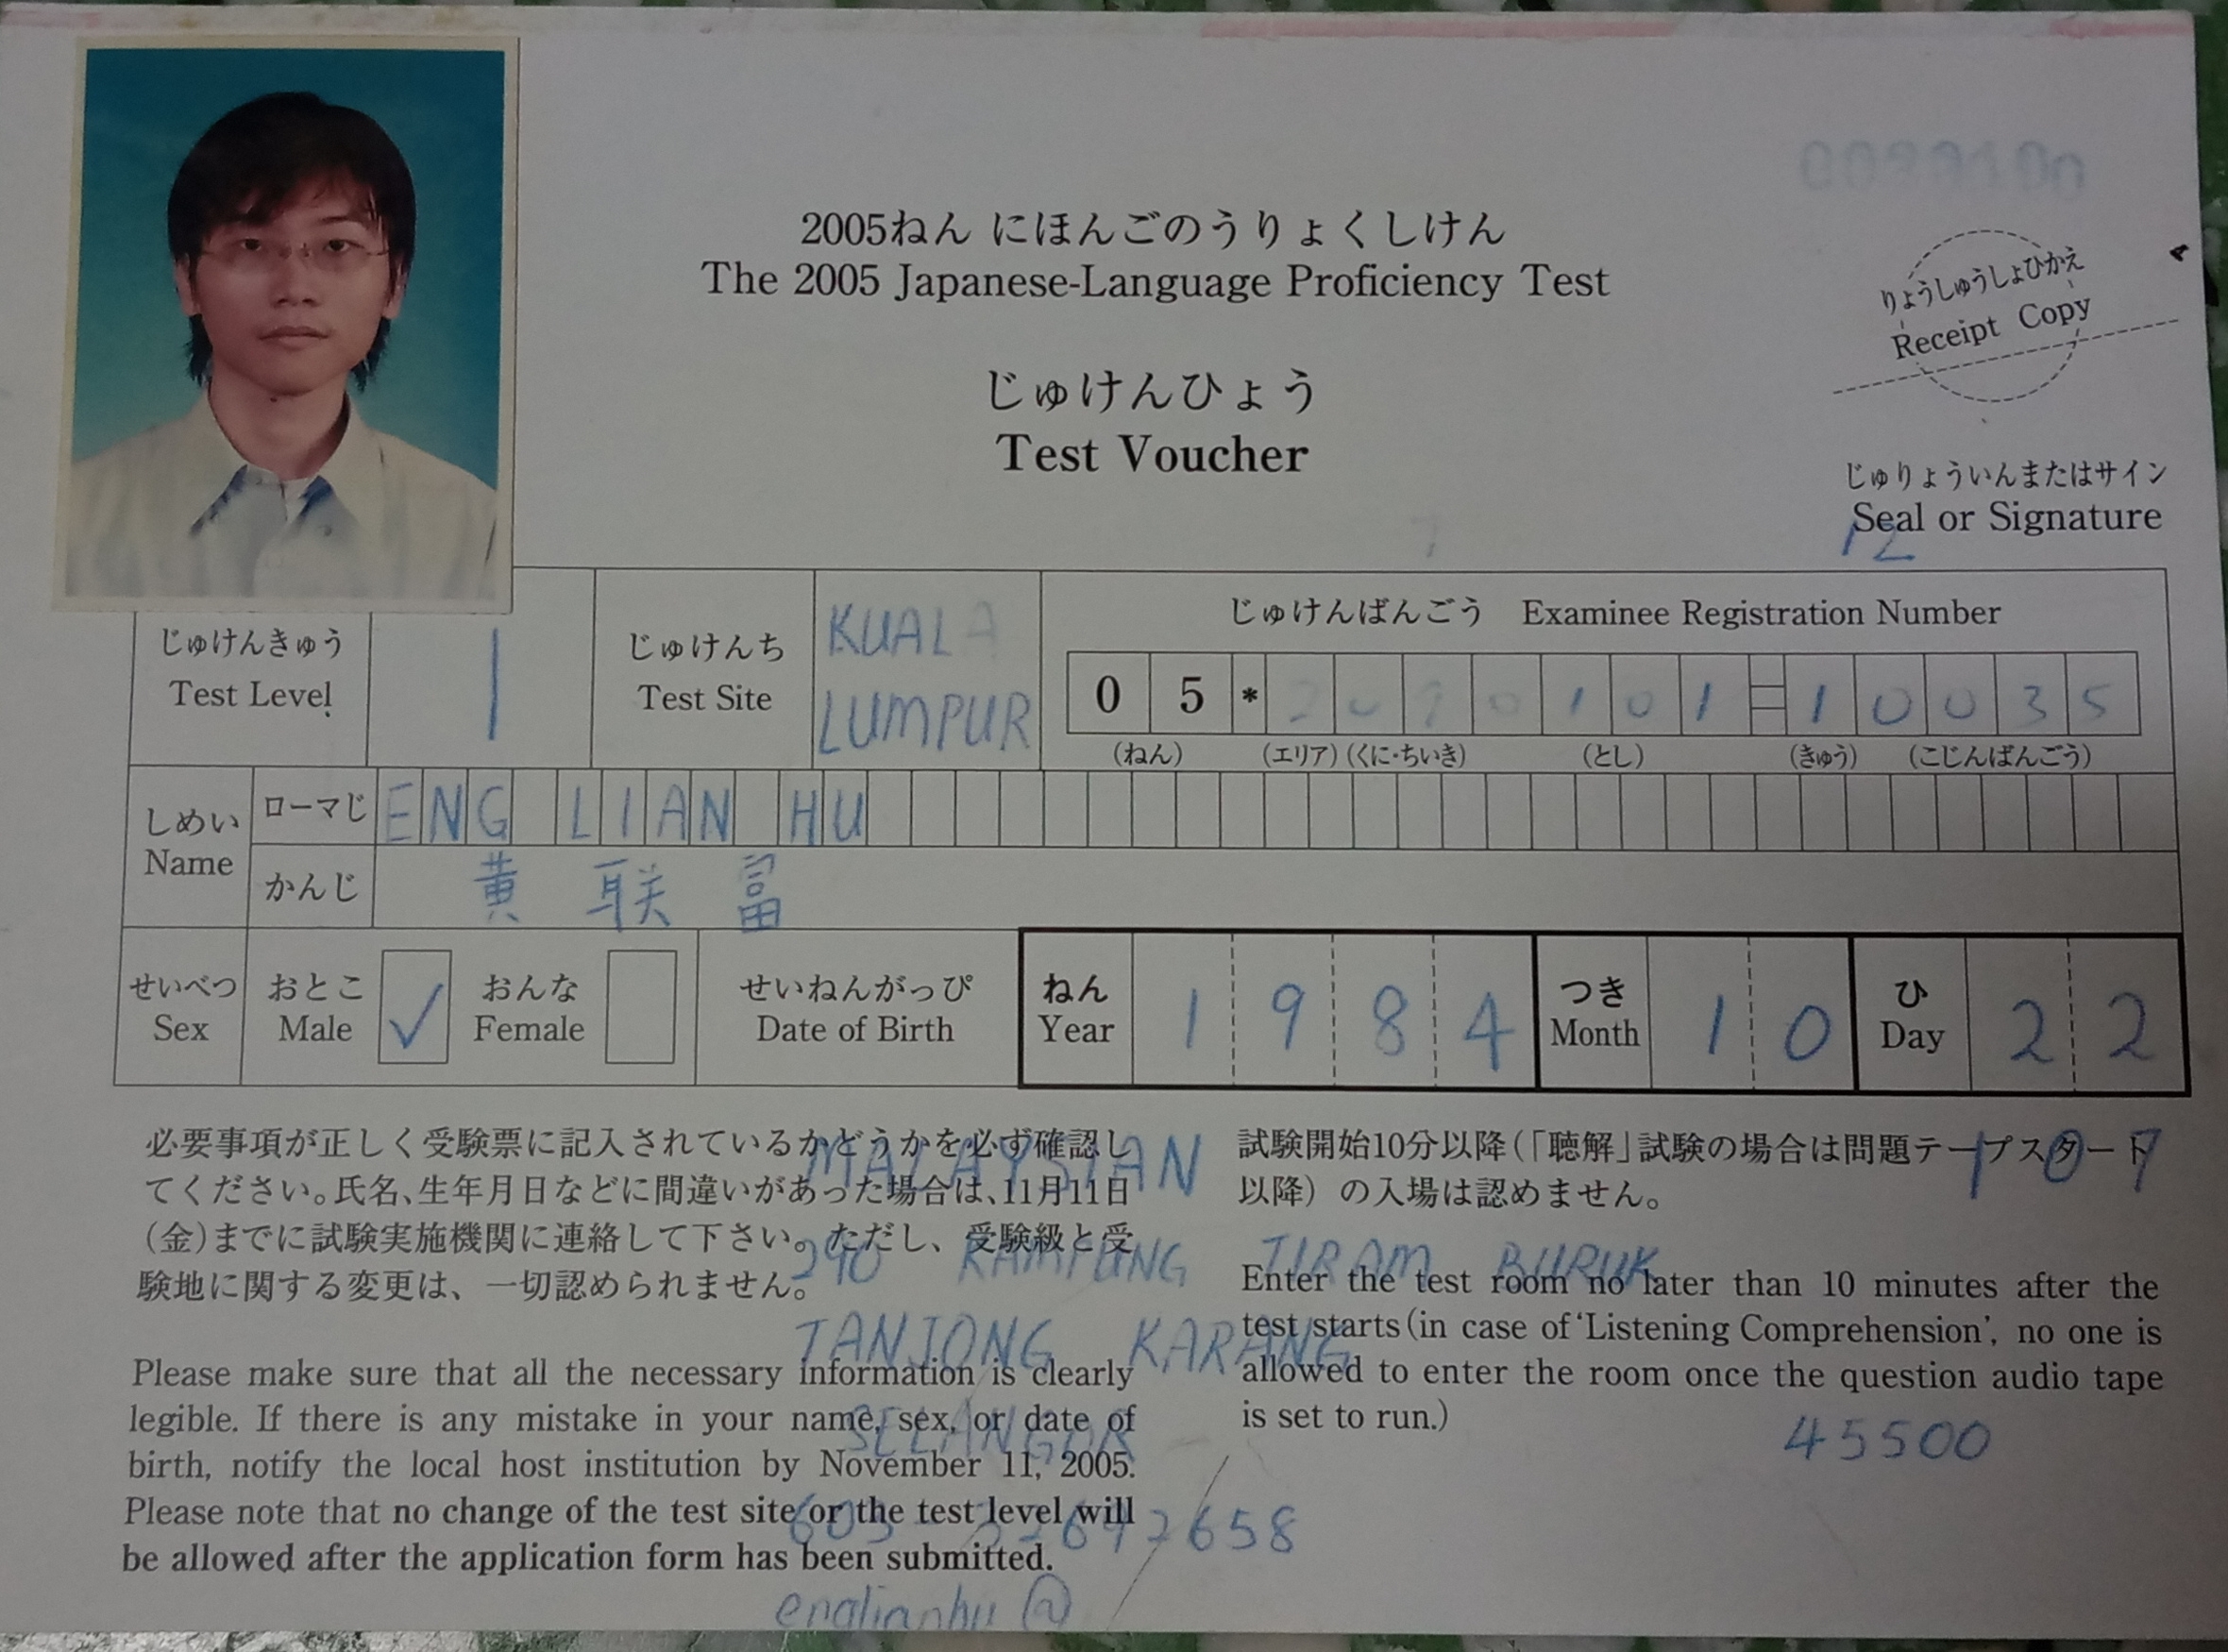 2005ねん にほんごのうりょくしけん
The 2005 Japanese-Language Proficiency Test
りょうしゅうしょひかえ
Receipt Copy
じゅけんひょう
Test Voucher
じゅりょういんまたはサイン
Seal or Signature
12
じゅけんきゅう
Test Level
1
じゅけんち
Test Site
KUALA
LUMPUR
じゅけんばんごう Examinee Registration Number
0 5 * 2 0 9 0 1 0 1 = 1 0 0 3 5
(ねん) (エリア) (くに・ちいき) (とし) (きゅう) (こじんばんごう)
しめい
Name
ローマじ ENG LIAN HU
かんじ 黄 联 富
せいべつ
Sex
おとこ
Male ✓
おんな
Female
せいねんがっぴ
Date of Birth
ねん
Year
1 9 8 4
つき
Month
1 0
ひ
Day
2 2
必要事項が正しく受験票に記入されているかどうかを必ず確認し
てください。氏名、生年月日などに間違いがあった場合は、11月11日
(金)までに試験実施機関に連絡して下さい。ただし、受験級と受
験地に関する変更は、一切認められません。
Please make sure that all the necessary information is clearly
legible. If there is any mistake in your name, sex, or date of
birth, notify the local host institution by November 11, 2005.
Please note that no change of the test site or the test level will
be allowed after the application form has been submitted.
試験開始10分以降(「聴解」試験の場合は問題テープスタート
以降) の入場は認めません。
Enter the test room no later than 10 minutes after the
test starts(in case of 'Listening Comprehension', no one is
allowed to enter the room once the question audio tape
is set to run.)
MALAYSIAN 107
290 KAMPUNG TIRAM BURUK
TANJONG KARANG
SELANGOR 45500
603 - 32692658
englianhu @